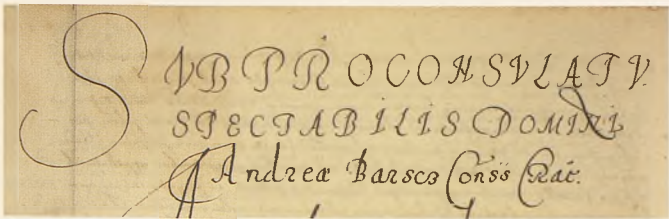 SVB PROCONSVLATV
SPECTABILIS DOMINI
Andreæ Barscz Conss Crac.